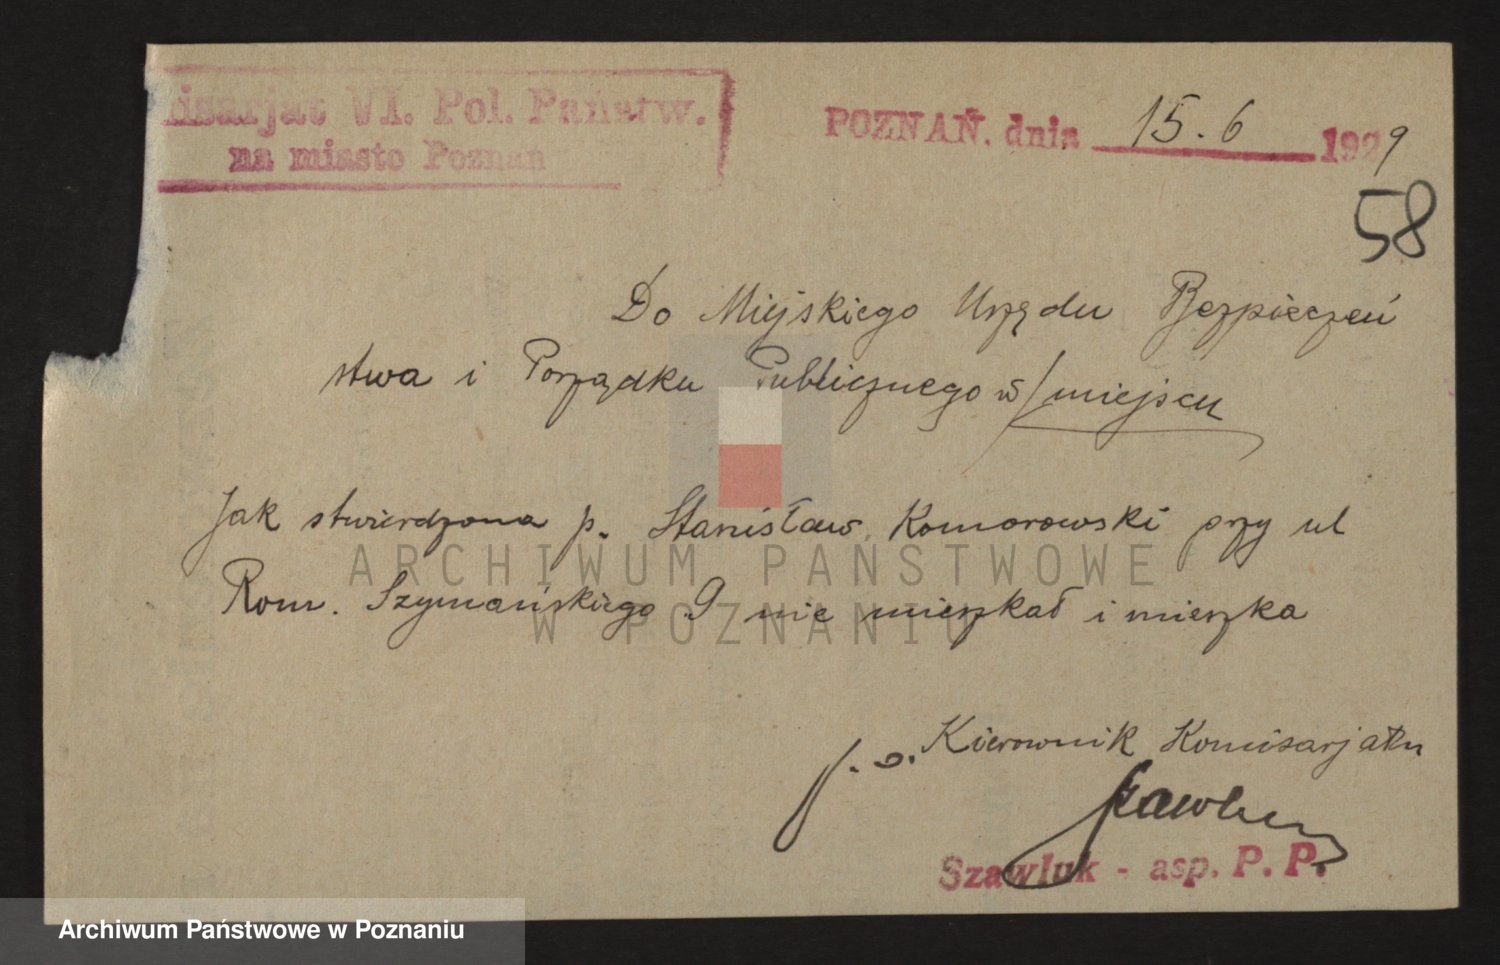 isarjat VI. Pol. Państw.
na miasto Poznań
POZNAŃ. dnia 15. 6 1929
58
Do Miejskiego Urzędu Bezpieczeń
stwa i Porządku Publicznego w/miejscu
Jak stwierdzona p. Stanisław Komorowski przy ul
Rom. Szymańskiego 9 nie mieszkał i mieszka
Kierownik Komisarjatu
Szawluk
Szawluk - asp. P. P.
ARCHIWUM PAŃSTWOWE
W POZNANIU
Archiwum Państwowe w Poznaniu